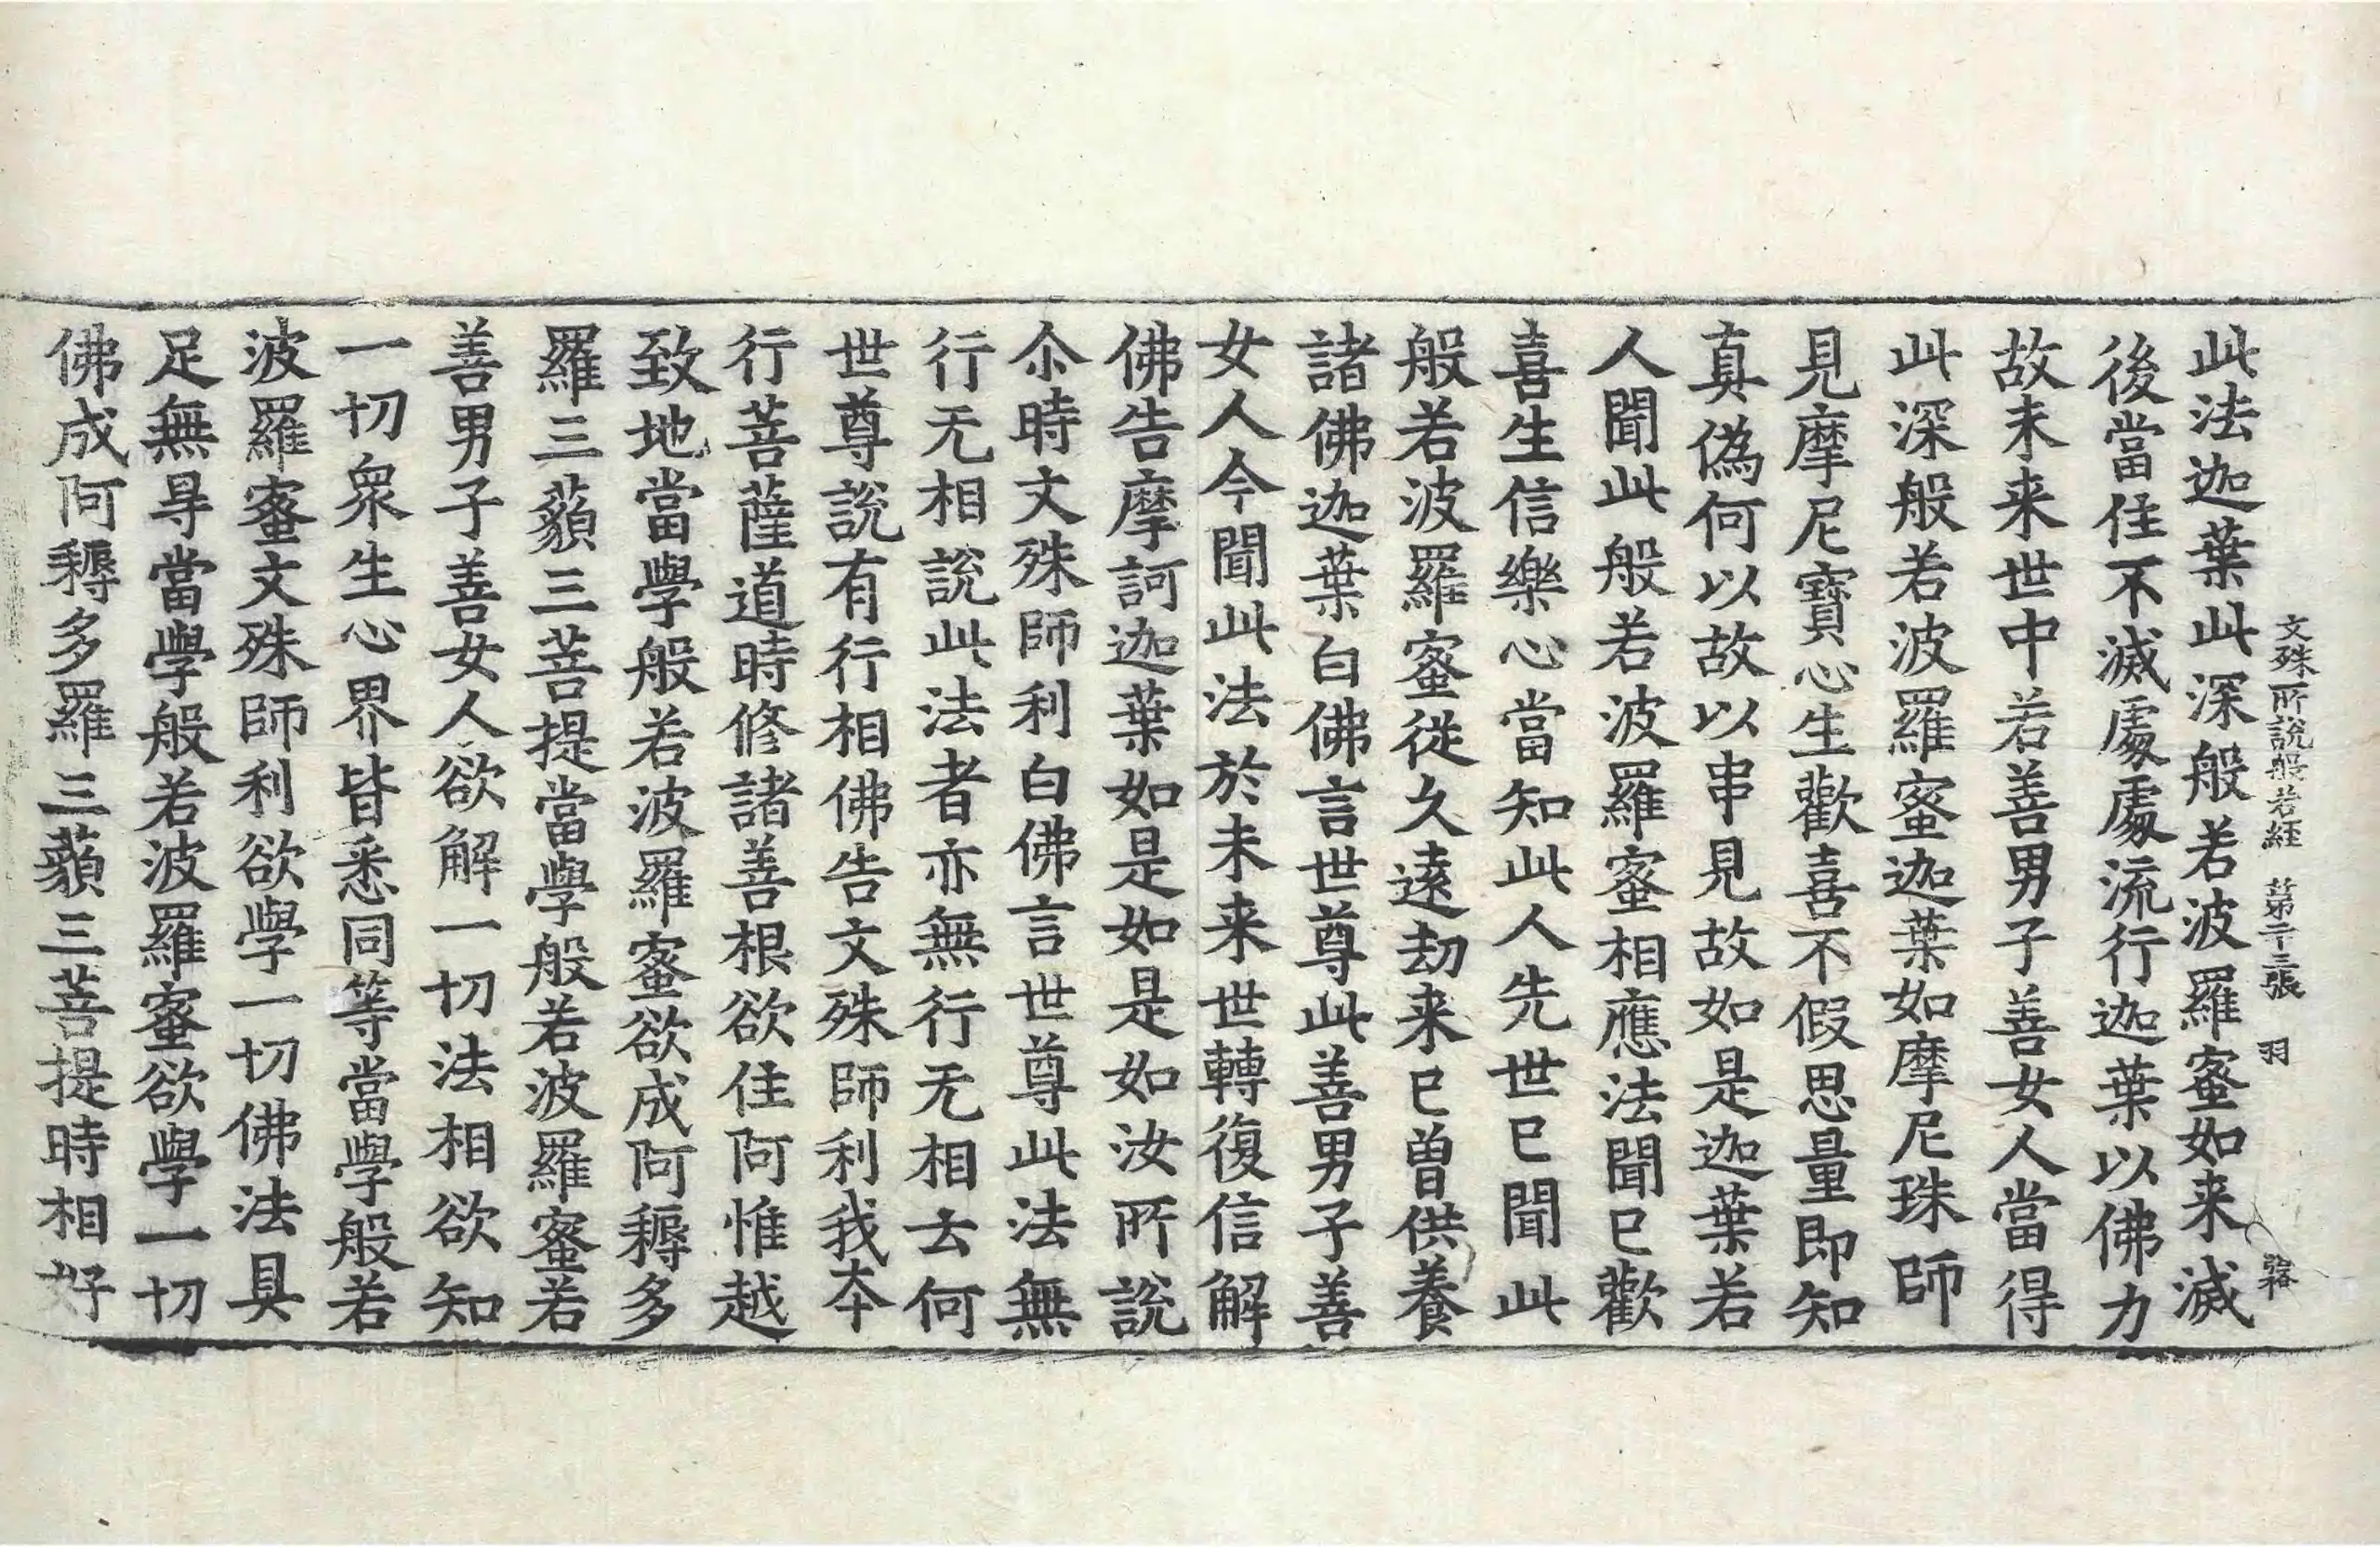 文殊所說般若經 第十三張 羽
此法迦葉此深般若波羅蜜如来滅
後當住不滅處處流行迦葉以佛力
故未来世中若善男子善女人當得
此深般若波羅蜜迦葉如摩尼珠師
見摩尼寶心生歡喜不假思量即知
真偽何以故以串見故如是迦葉若
人聞此般若波羅蜜相應法聞已歡
喜生信樂心當知此人先世已聞此
般若波羅蜜従久遠劫来已曽供養
諸佛迦葉白佛言世尊此善男子善
女人今聞此法於未来世轉復信解
佛告摩訶迦葉如是如是如汝所說
尒時文殊師利白佛言世尊此法無
行无相說此法者亦無行无相云何
世尊說有行相佛告文殊師利我夲
行菩薩道時修諸善根欲住阿惟越
致地當學般若波羅蜜欲成阿耨多
羅三藐三菩提當學般若波羅蜜若
善男子善女人欲解一切法相欲知
一切衆生心界皆悉同等當學般若
波羅蜜文殊師利欲學一切佛法具
足無㝵當學般若波羅蜜欲學一切
佛成阿耨多羅三藐三菩提時相好